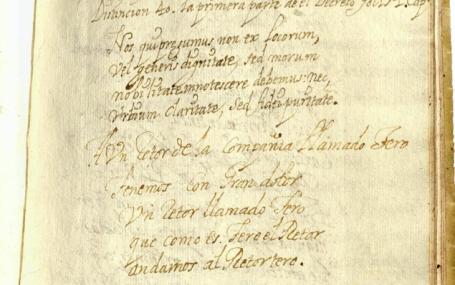 Distincion 40. la primera parte de el Decreto folis
Nos qui presumus non ex locorum,
vel generis dignitate, sed morum
nobilitate innotescere debemus: nec,
urbium claritate, sed fidei puritate.
A Un Retor de la Compañia llamado Fero
Tenemos con Gran dolor
Un Retor llamado Fero
que como es Fero el Retor
andamos al Retortero.